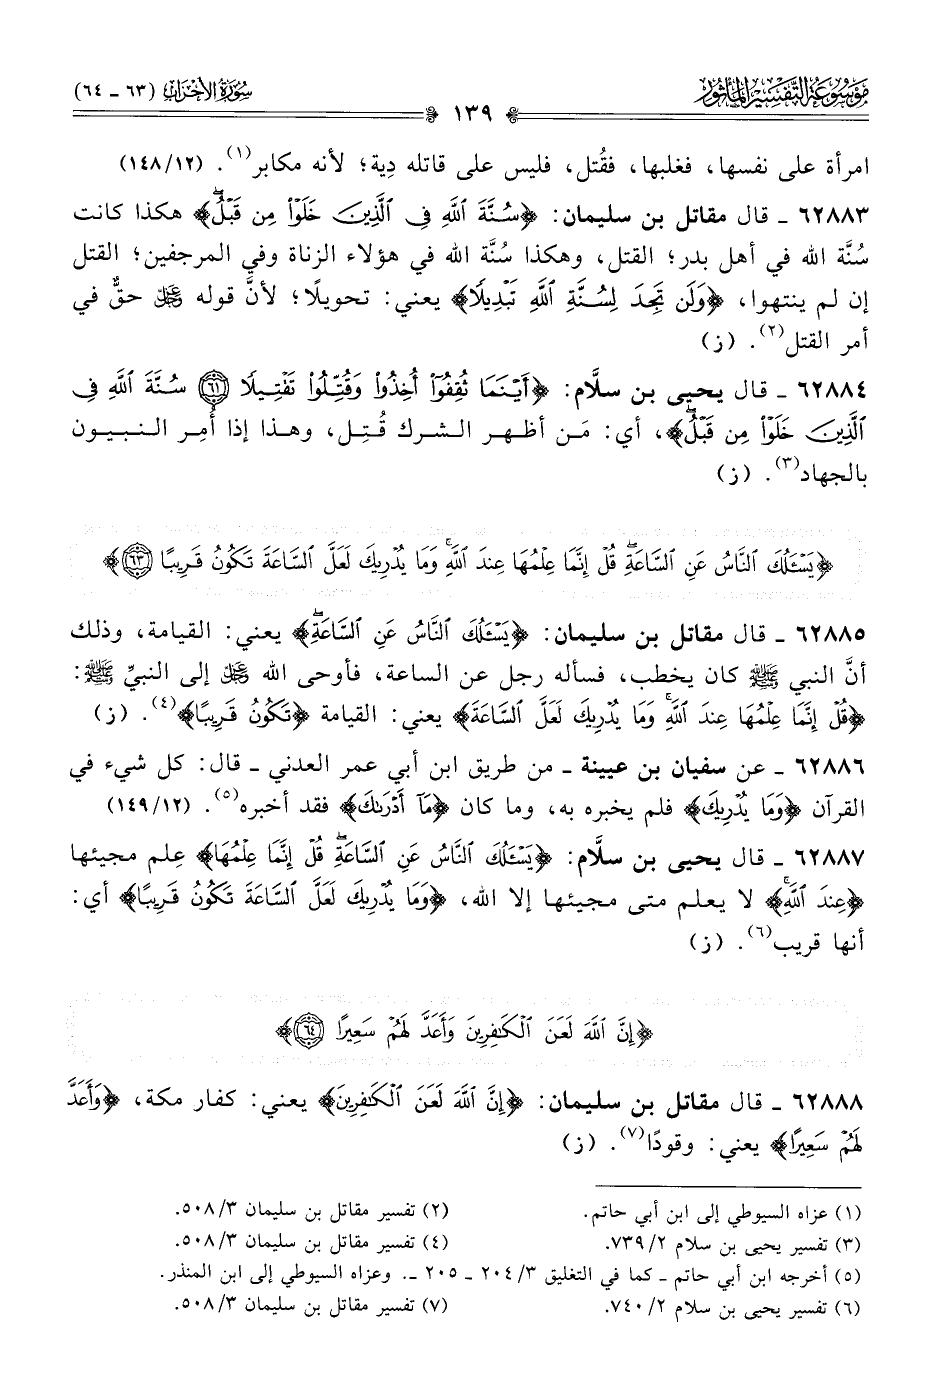 موسوعة التفسير المأثور
سورة الأحزاب (٦٣ ـ ٦٤)
١٣٩
امرأة على نفسها، فغلبها، فقُتل، فليس على قاتله دِية؛ لأنه مكابر(١). (١٤٨/١٢)
٦٢٨٨٣ ـ قال مقاتل بن سليمان: ﴿سُنَّةَ ٱللَّهِ فِى ٱلَّذِينَ خَلَوْا۟ مِن قَبْلُ﴾ هكذا كانت
سُنَّة الله في أهل بدر؛ القتل، وهكذا سُنَّة الله في هؤلاء الزناة وفي المرجفين؛ القتل
إن لم ينتهوا، ﴿وَلَن تَجِدَ لِسُنَّةِ ٱللَّهِ تَبْدِيلًا﴾ يعني: تحويلًا؛ لأنَّ قوله ﷻ حقٌّ في
أمر القتل(٢). (ز)
٦٢٨٨٤ ـ قال يحيى بن سلَّام: ﴿أَيْنَمَا ثُقِفُوٓا۟ أُخِذُوا۟ وَقُتِّلُوا۟ تَقْتِيلًا ۝٦١ سُنَّةَ ٱللَّهِ فِى
ٱلَّذِينَ خَلَوْا۟ مِن قَبْلُ﴾، أي: مَن أظهر الشرك قُتِل، وهذا إذا أُمِر النبيون
بالجهاد(٣). (ز)
﴿يَسْـَٔلُكَ ٱلنَّاسُ عَنِ ٱلسَّاعَةِۖ قُلْ إِنَّمَا عِلْمُهَا عِندَ ٱللَّهِۚ وَمَا يُدْرِيكَ لَعَلَّ ٱلسَّاعَةَ تَكُونُ قَرِيبًا ۝٦٣﴾
٦٢٨٨٥ ـ قال مقاتل بن سليمان: ﴿يَسْـَٔلُكَ ٱلنَّاسُ عَنِ ٱلسَّاعَةِۖ﴾ يعني: القيامة، وذلك
أنَّ النبي ﷺ كان يخطب، فسأله رجل عن الساعة، فأوحى الله ﷻ إلى النبيِّ ﷺ:
﴿قُلْ إِنَّمَا عِلْمُهَا عِندَ ٱللَّهِۚ وَمَا يُدْرِيكَ لَعَلَّ ٱلسَّاعَةَ﴾ يعني: القيامة ﴿تَكُونُ قَرِيبًا﴾(٤). (ز)
٦٢٨٨٦ ـ عن سفيان بن عيينة ـ من طريق ابن أبي عمر العدني ـ قال: كل شيء في
القرآن ﴿وَمَا يُدْرِيكَ﴾ فلم يخبره به، وما كان ﴿مَآ أَدْرَىٰكَ﴾ فقد أخبره(٥). (١٤٩/١٢)
٦٢٨٨٧ ـ قال يحيى بن سلَّام: ﴿يَسْـَٔلُكَ ٱلنَّاسُ عَنِ ٱلسَّاعَةِۖ قُلْ إِنَّمَا عِلْمُهَا﴾ عِلم مجيئها
﴿عِندَ ٱللَّهِۚ﴾ لا يعلم متى مجيئها إلا الله، ﴿وَمَا يُدْرِيكَ لَعَلَّ ٱلسَّاعَةَ تَكُونُ قَرِيبًا﴾ أي:
أنها قريب(٦). (ز)
﴿إِنَّ ٱللَّهَ لَعَنَ ٱلْكَٰفِرِينَ وَأَعَدَّ لَهُمْ سَعِيرًا ۝٦٤﴾
٦٢٨٨٨ ـ قال مقاتل بن سليمان: ﴿إِنَّ ٱللَّهَ لَعَنَ ٱلْكَٰفِرِينَ﴾ يعني: كفار مكة، ﴿وَأَعَدَّ
لَهُمْ سَعِيرًا﴾ يعني: وقودًا(٧). (ز)
(١) عزاه السيوطي إلى ابن أبي حاتم.
(٢) تفسير مقاتل بن سليمان ٥٠٨/٣.
(٣) تفسير يحيى بن سلام ٧٣٩/٢.
(٤) تفسير مقاتل بن سليمان ٥٠٨/٣.
(٥) أخرجه ابن أبي حاتم ـ كما في التغليق ٢٠٤/٣ ـ ٢٠٥ ـ. وعزاه السيوطي إلى ابن المنذر.
(٦) تفسير يحيى بن سلام ٧٤٠/٢.
(٧) تفسير مقاتل بن سليمان ٥٠٨/٣.